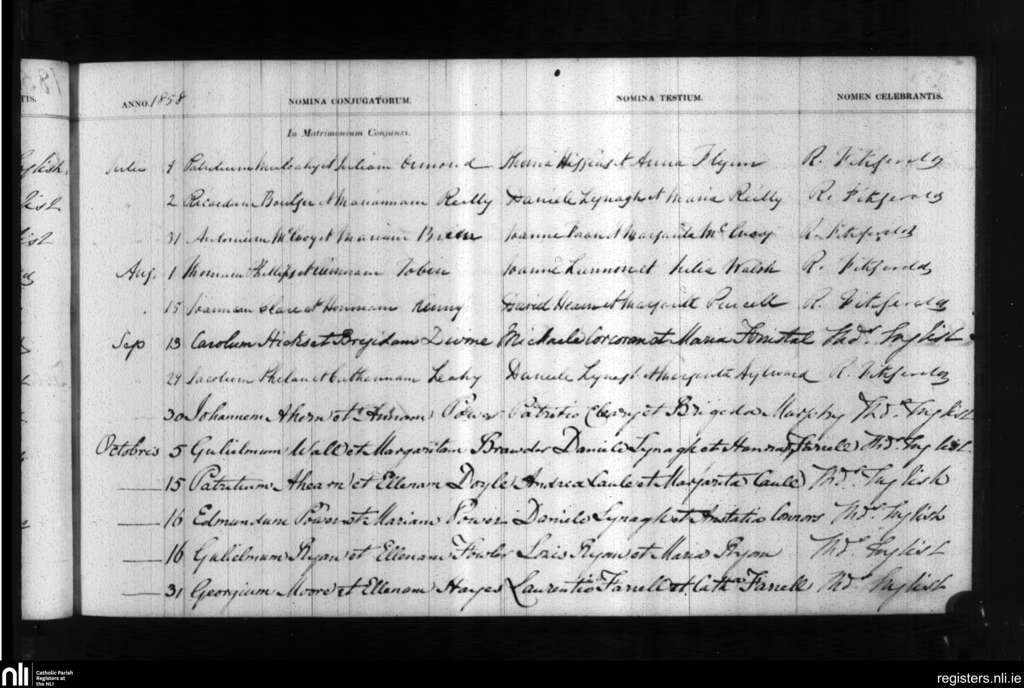 TIS.
ANNO. 1858 NOMINA CONJUGATORUM. NOMINA TESTIUM. NOMEN CELEBRANTIS.
In Matrimonium Conjunxi.
Julii 1 Patricium et Juliam Ormond Thoma Higgins et Anna Flynn R. Fitzgerald
2 Ricardum Boulger et Mariannam Reilly Daniele Lynagh et Maria Reilly R. Fitzgerald
31 Antonium McCooy et Mariam Breen Joanne et Margarita R. Fitzgerald
Aug. 1 Thomam Phillips et Tobin Joanne Lennon et Julia Walsh R. Fitzgerald
15 Joannem et Honoram Kenny David Hearn et Margarett Purcell R. Fitzgerald
Sep 13 Carolum Hicks et Brigidam Divine Michaele Corcoran et Maria Forristal Thos. English
29 Jacobum Phelan et Catherinam Leahy Daniele Lynagh et Margarita Aylward R. Fitzgerald
30 Johannem Ahern et Power Patritio Cleary et Brigeda Murphy Thos. English
Octobris 5 Gulielmum Wall et Margaritam Brawder Daniele Lynagh et Hannah Farrell Thos. English
15 Patritium Ahearn et Ellenam Doyle Andrea Caule et Margarita Caule Thos. English
16 Edmundum Power et Mariam Power Daniele Lynagh et Anstatio Connors Thos. English
16 Gulielmum Ryan et Ellenam Fowler Ryan et Maria Ryan Thos. English
31 Georgium Moore et Ellenam Hayes Laurentio Farrell et Cathna Farrell Thos. English
nli Catholic Parish
Registers at
the NLI
registers.nli.ie